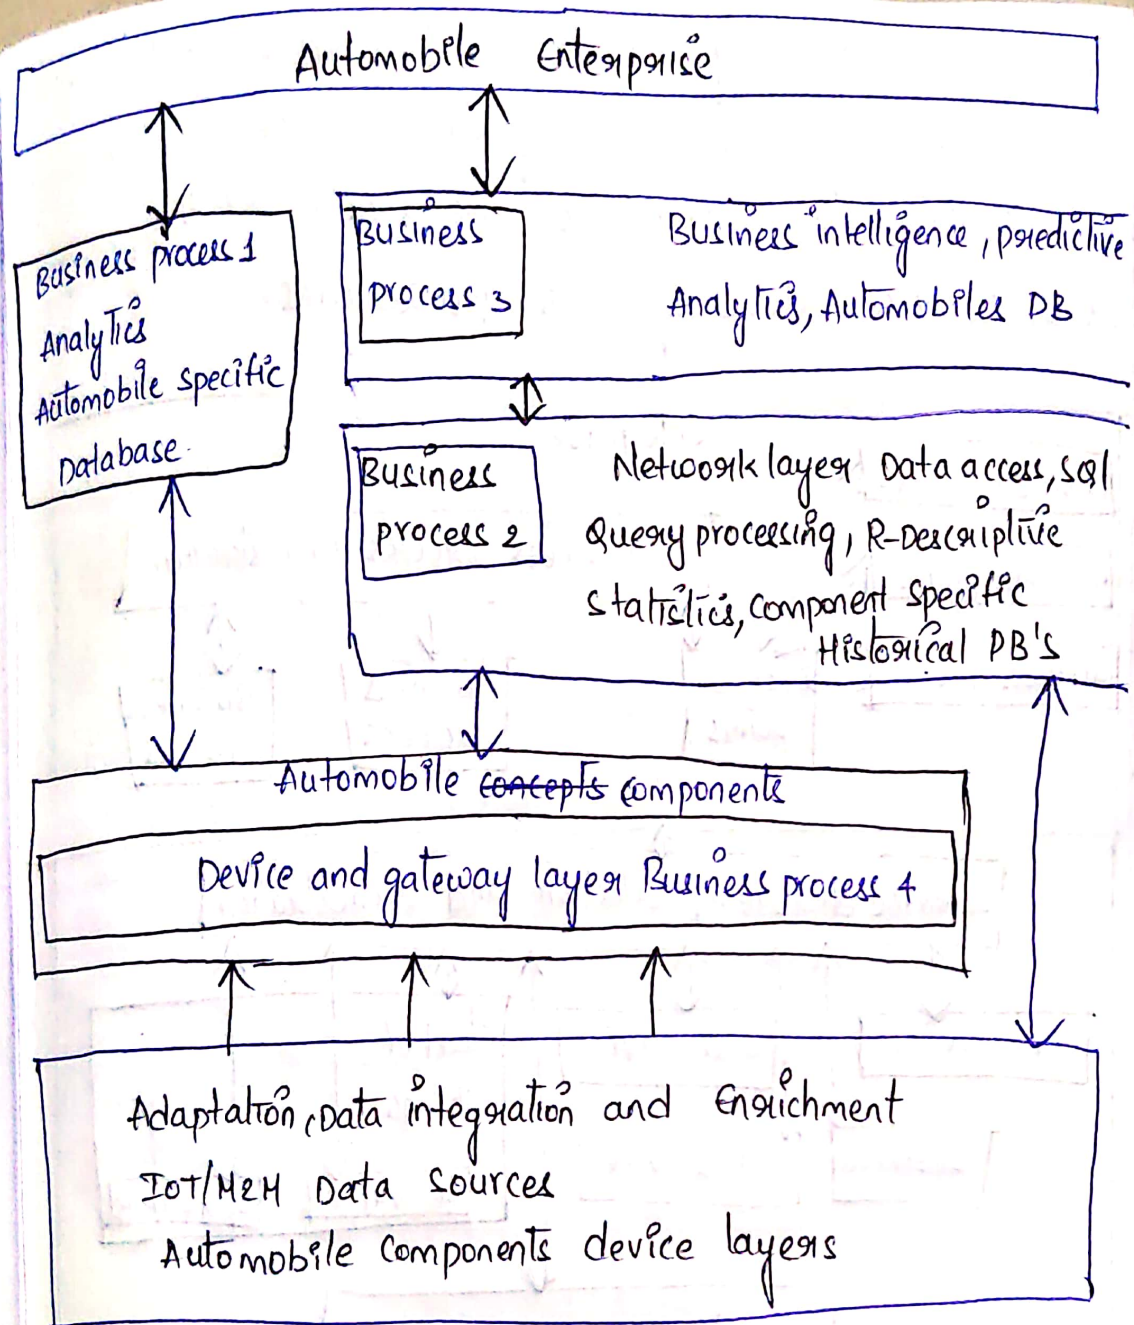 Automobile Enterprise
Business process 1
Analytics
Automobile specific
Database.
Business
process 3
Business intelligence, predictive
Analytics, Automobiles DB
Business
process 2
Network layer Data access, SQl
Query processing, R-Descriptive
Statistics, component specific
Historical DB's
Automobile concepts components
Device and gateway layer Business process 4
Adaptation, Data integration and Enrichment
IOT/M2M Data Sources
Automobile components device layers